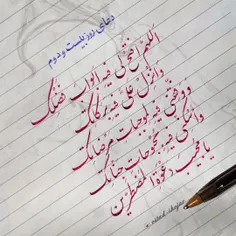 دعای روز بیست و دوم
اللهم افتح لی فیه ابواب فضلک
وانزل علی فیه برکاتک
ووفقنی فیه لموجبات مرضاتک
واسکنی فیه بحبوحات جناتک
یا مجیب دعوة المضطرین